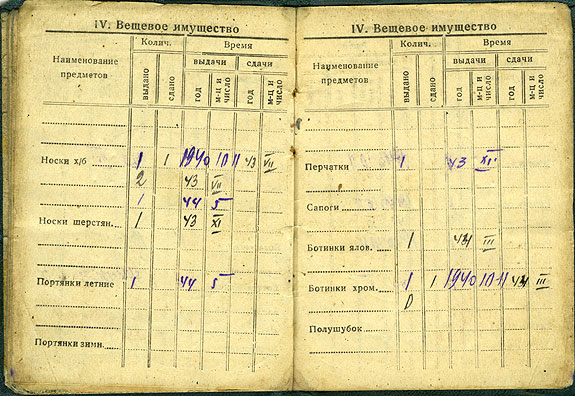 IV. Вещевое имущество
Наименование предметов
Колич.
Время
выдано
сдано
выдачи
сдачи
год
м-ц и число
год
м-ц и число
Носки х/б 1 1 1940 10 11 43 VII
2 43 VII
1 44 5
Носки шерстян. 1 43 XI
Портянки летние 1 44 5
Портянки зимн.
IV. Вещевое имущество
Наименование предметов
Колич.
Время
выдано
сдано
выдачи
сдачи
год
м-ц и число
год
м-ц и число
Перчатки 1 43 XI
Сапоги
Ботинки ялов. 1 III
Ботинки хром. 1 1 1940 10 11 III
Полушубок